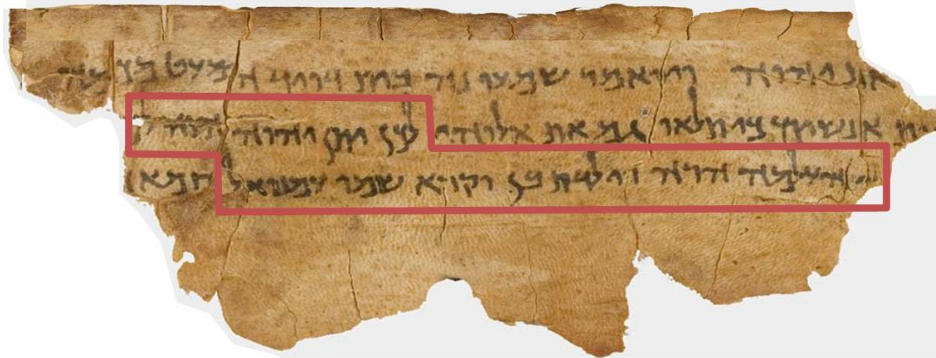 יהוה ויאמר שמעו נא בית דויד המעט
אנשים כי תלאו גם את אלוהי לכן יתן יהוה
העלמה הרה וילדת בן וקרא שמו עמנואל חמא